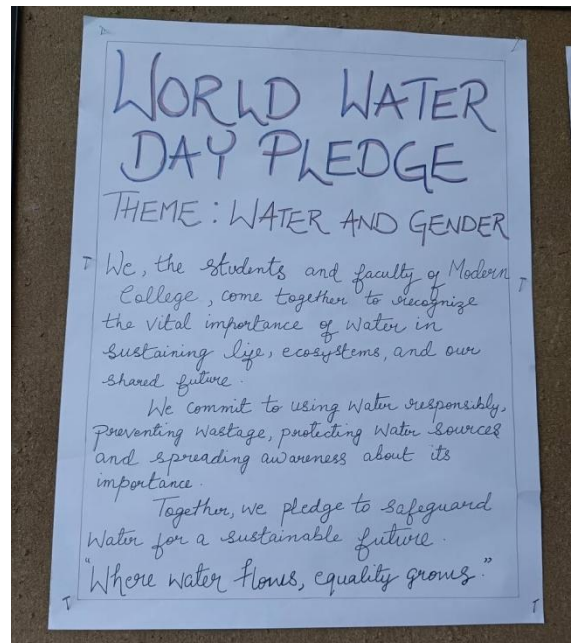 WORLD WATER
DAY PLEDGE
THEME: WATER AND GENDER
We, the students and faculty of Modern
College, come together to recognize
the vital importance of water in
sustaining life, ecosystems, and our
shared future.
We commit to using water responsibly,
preventing wastage, protecting water sources
and spreading awareness about its
importance.
Together, we pledge to safeguard
water for a sustainable future.
"Where water flows, equality grows."